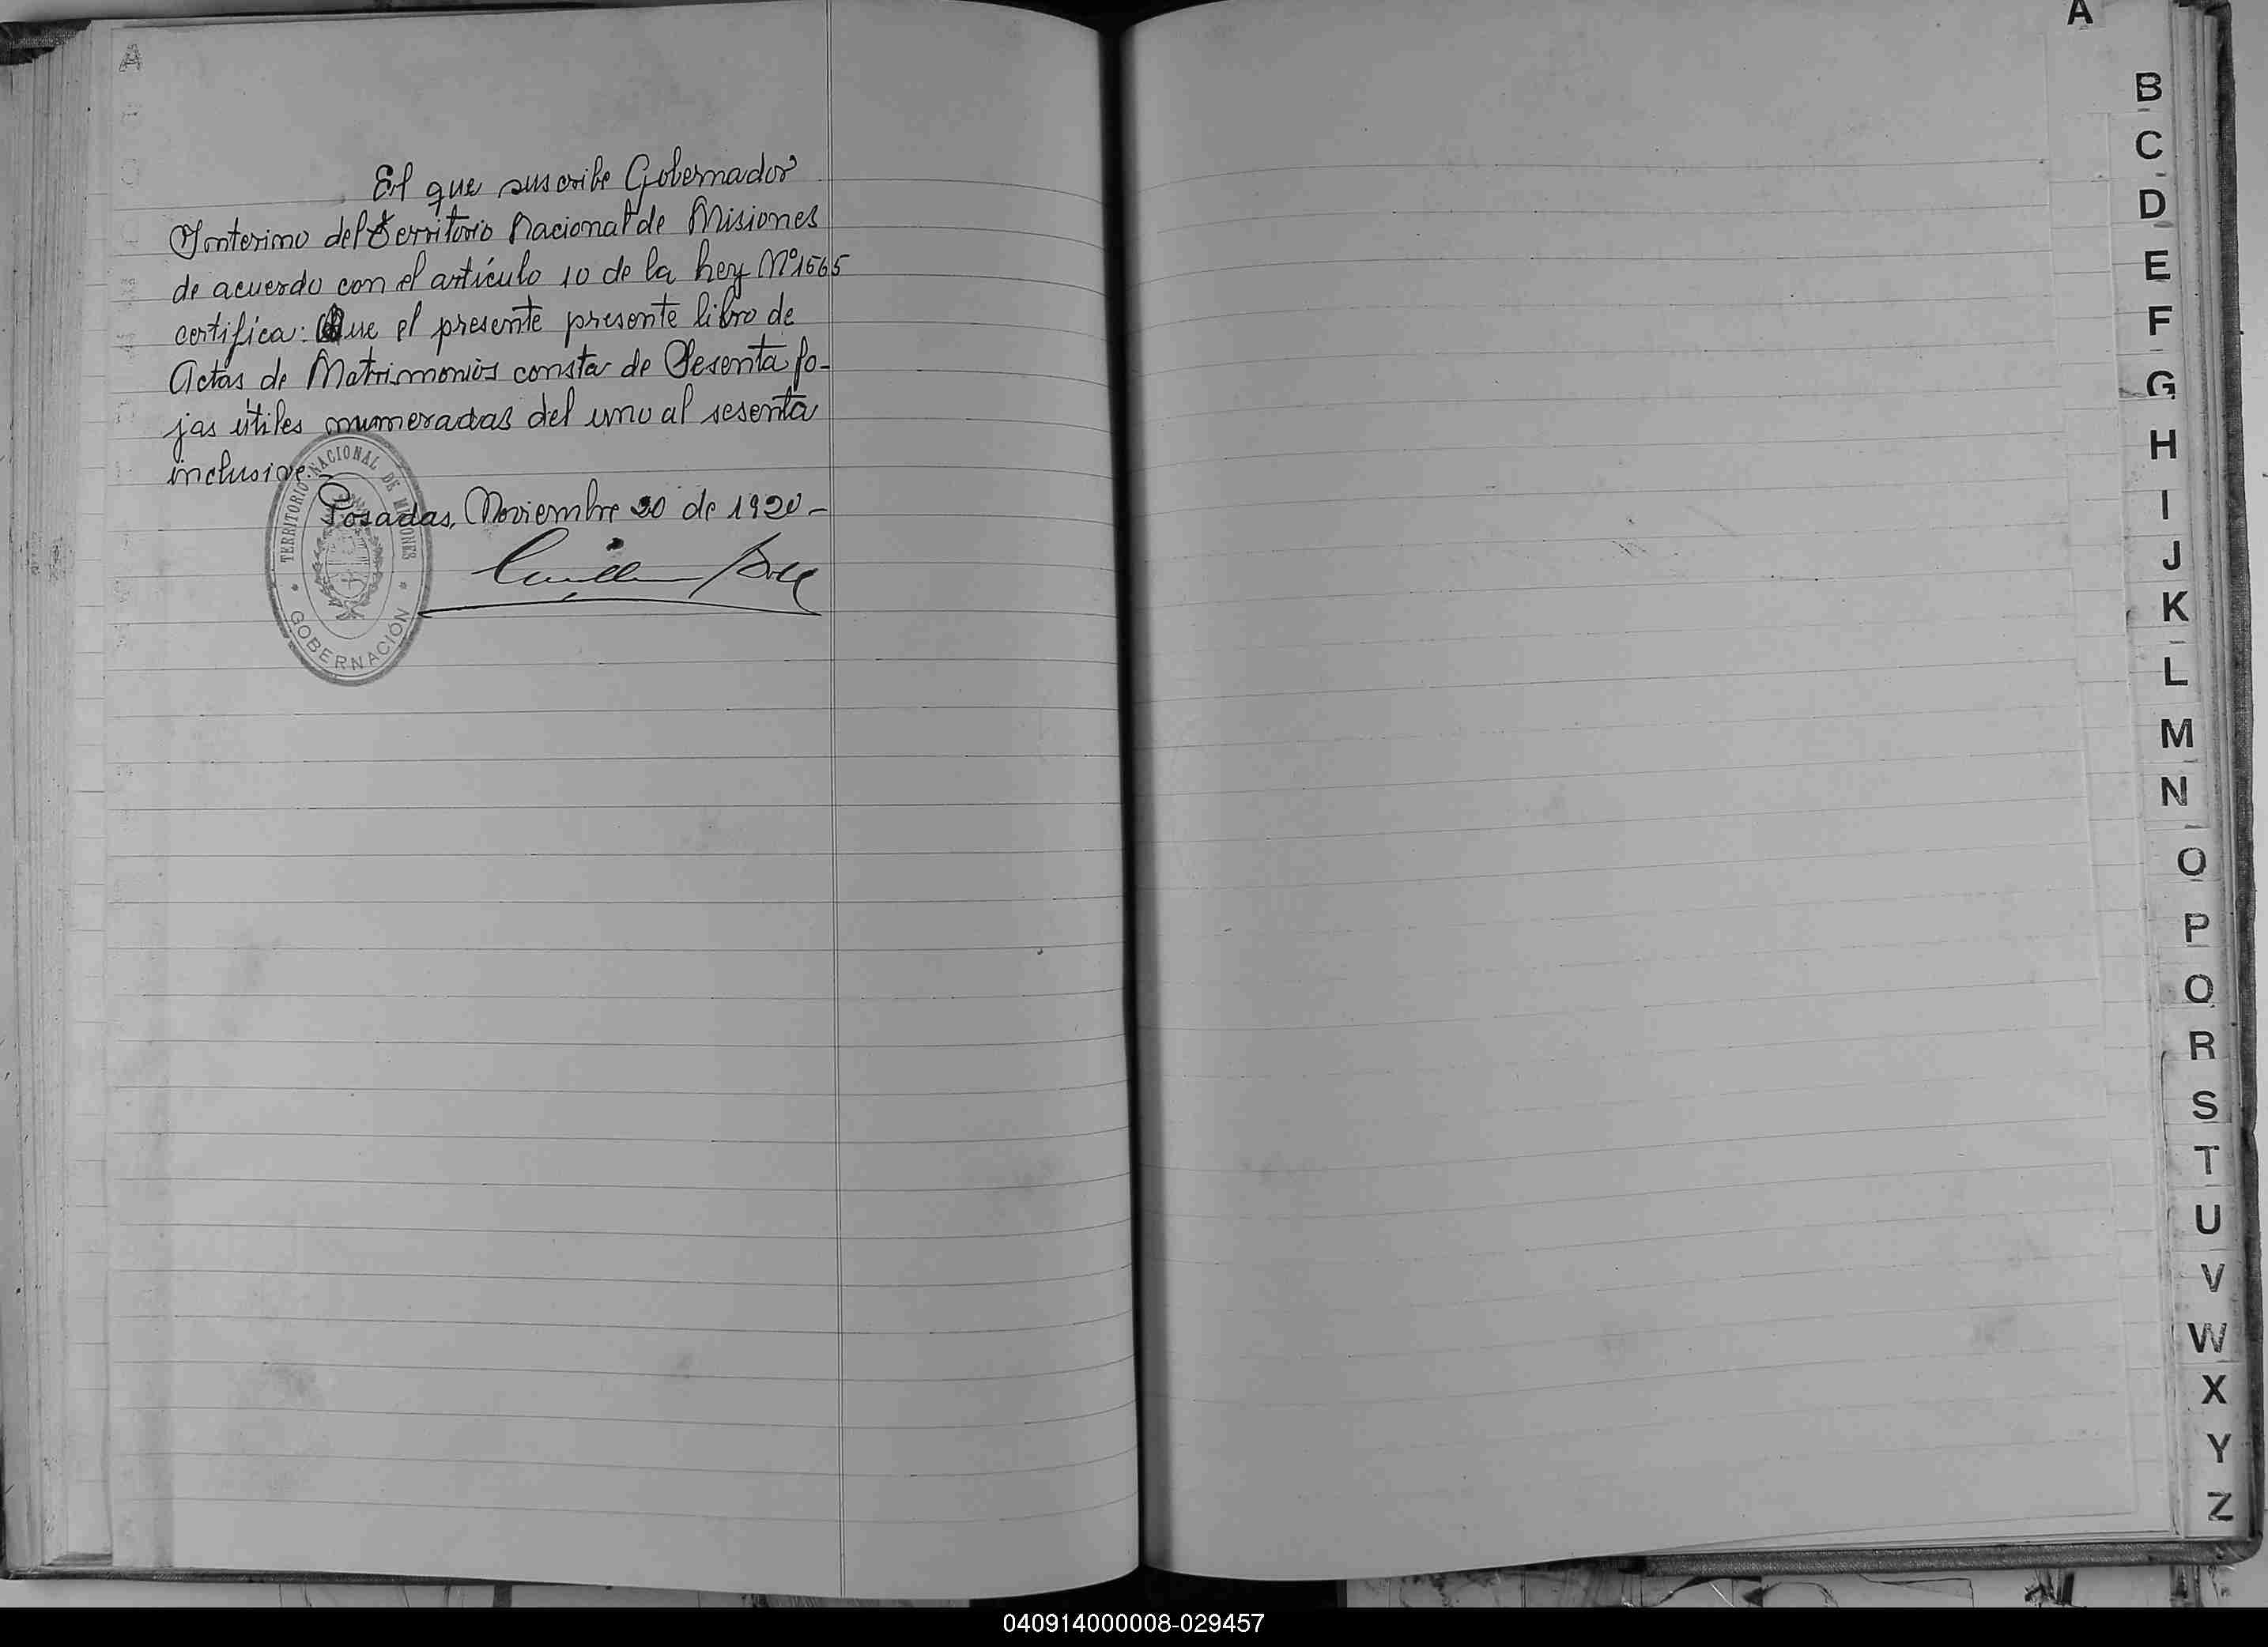 El que suscribe Gobernador
Interino del Territorio Nacional de Misiones
de acuerdo con el artículo 10 de la Ley Nº 1565
certifica: Que el presente presente libro de
Actas de Matrimonios consta de Sesenta fo-
jas útiles numeradas del uno al sesenta
inclusive.-
Posadas, Noviembre 20 de 1920-
TERRITORIO NACIONAL DE MISIONES
GOBERNACIÓN
A
A
B
C
D
E
F
G
H
I
J
K
L
M
N
O
P
Q
R
S
T
U
V
W
X
Y
Z
040914000008-029457